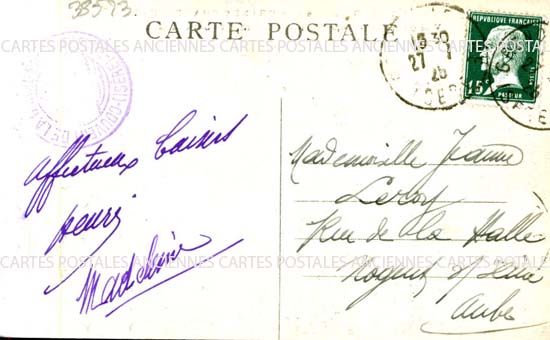 38573
CARTE POSTALE
RÉPUBLIQUE FRANÇAISE
15c
PASTEUR
13 30
27 - 1
26
CARTES POSTALES ANCIENNES CARTES POSTALES ANCIENNES CARTES POSTALES ANCIENNES
affectueux baisers
Henri
Madeleine
Mademoiselle Jeanne
Leroy
Rue de la Halle
Nogent s/ Seine
Aube
CARTES POSTALES ANCIENNES CARTES POSTALES ANCIENNES CARTES POSTALES ANCIENNES